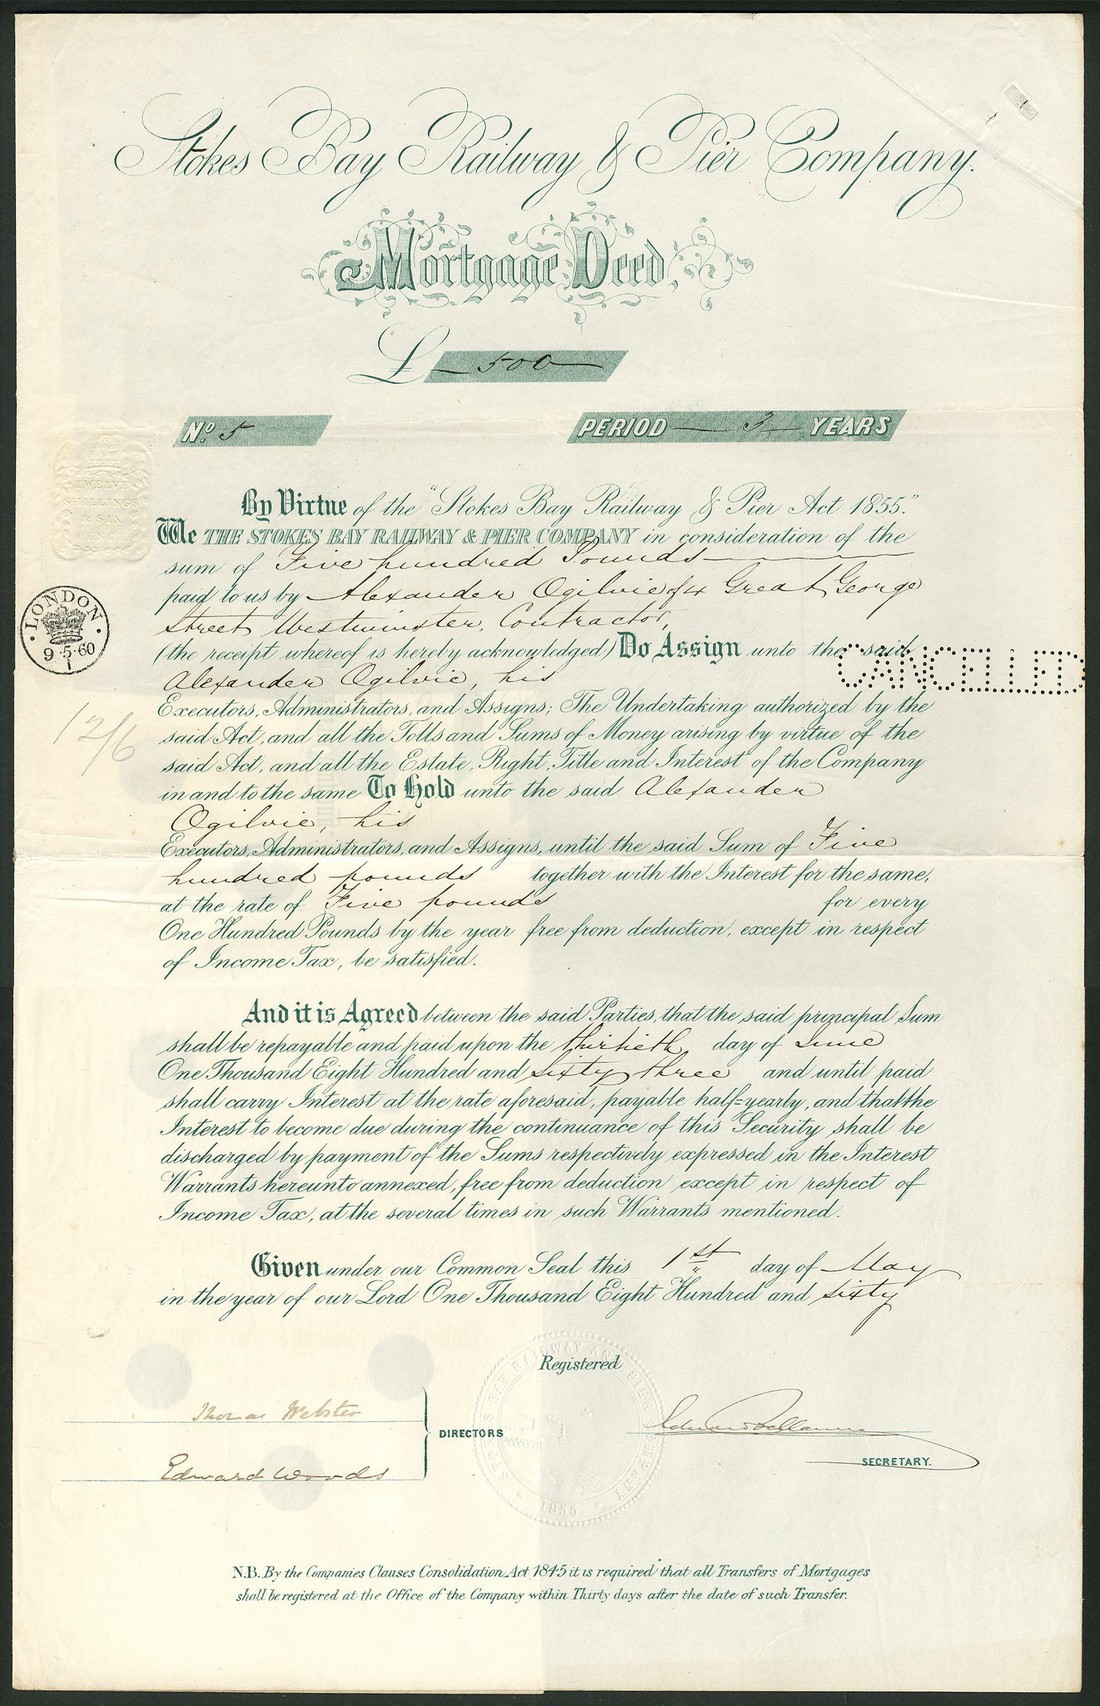 Stokes Bay Railway & Pier Company.
Mortgage Deed,
£ 500
No. 5
PERIOD 3 YEARS
TWELVE
SHILLINGS
SIX
By Virtue of the "Stokes Bay Railway & Pier Act 1855."
We THE STOKES BAY RAILWAY & PIER COMPANY in consideration of the
sum of Five hundred Pounds
paid to us by Alexander Ogilvie of 4 Great George
Street Westminster, Contractor,
(the receipt whereof is hereby acknowledged) Do Assign unto the said
CANCELLED
Alexander Ogilvie, his
LONDON
9·5·60
1
12/6
Executors, Administrators, and Assigns; The Undertaking authorized by the
said Act, and all the Tolls and Sums of Money arising by virtue of the
said Act, and all the Estate, Right, Title and Interest of the Company
in and to the same To Hold unto the said Alexander
Ogilvie, his
Executors, Administrators, and Assigns, until the said Sum of Five
hundred pounds together with the Interest for the same,
at the rate of Five pounds for every
One Hundred Pounds by the year free from deduction, except in respect
of Income Tax, be satisfied.
And it is Agreed between the said Parties, that the said principal Sum
shall be repayable and paid upon the thirtieth day of June
One Thousand Eight Hundred and sixty three and until paid
shall carry Interest at the rate aforesaid, payable half=yearly, and that the
Interest to become due during the continuance of this Security shall be
discharged by payment of the Sums respectively expressed in the Interest
Warrants hereunto annexed, free from deduction except in respect of
Income Tax, at the several times in such Warrants mentioned.
Given under our Common Seal this 1st day of May
in the year of our Lord One Thousand Eight Hundred and sixty
Registered
STOKES BAY RAILWAY AND PIER COMPANY
1855
Thomas Webster
Edward Woods
DIRECTORS
Edward
SECRETARY.
N.B. By the Companies Clauses Consolidation Act 1845 it is required that all Transfers of Mortgages
shall be registered at the Office of the Company within Thirty days after the date of such Transfer.